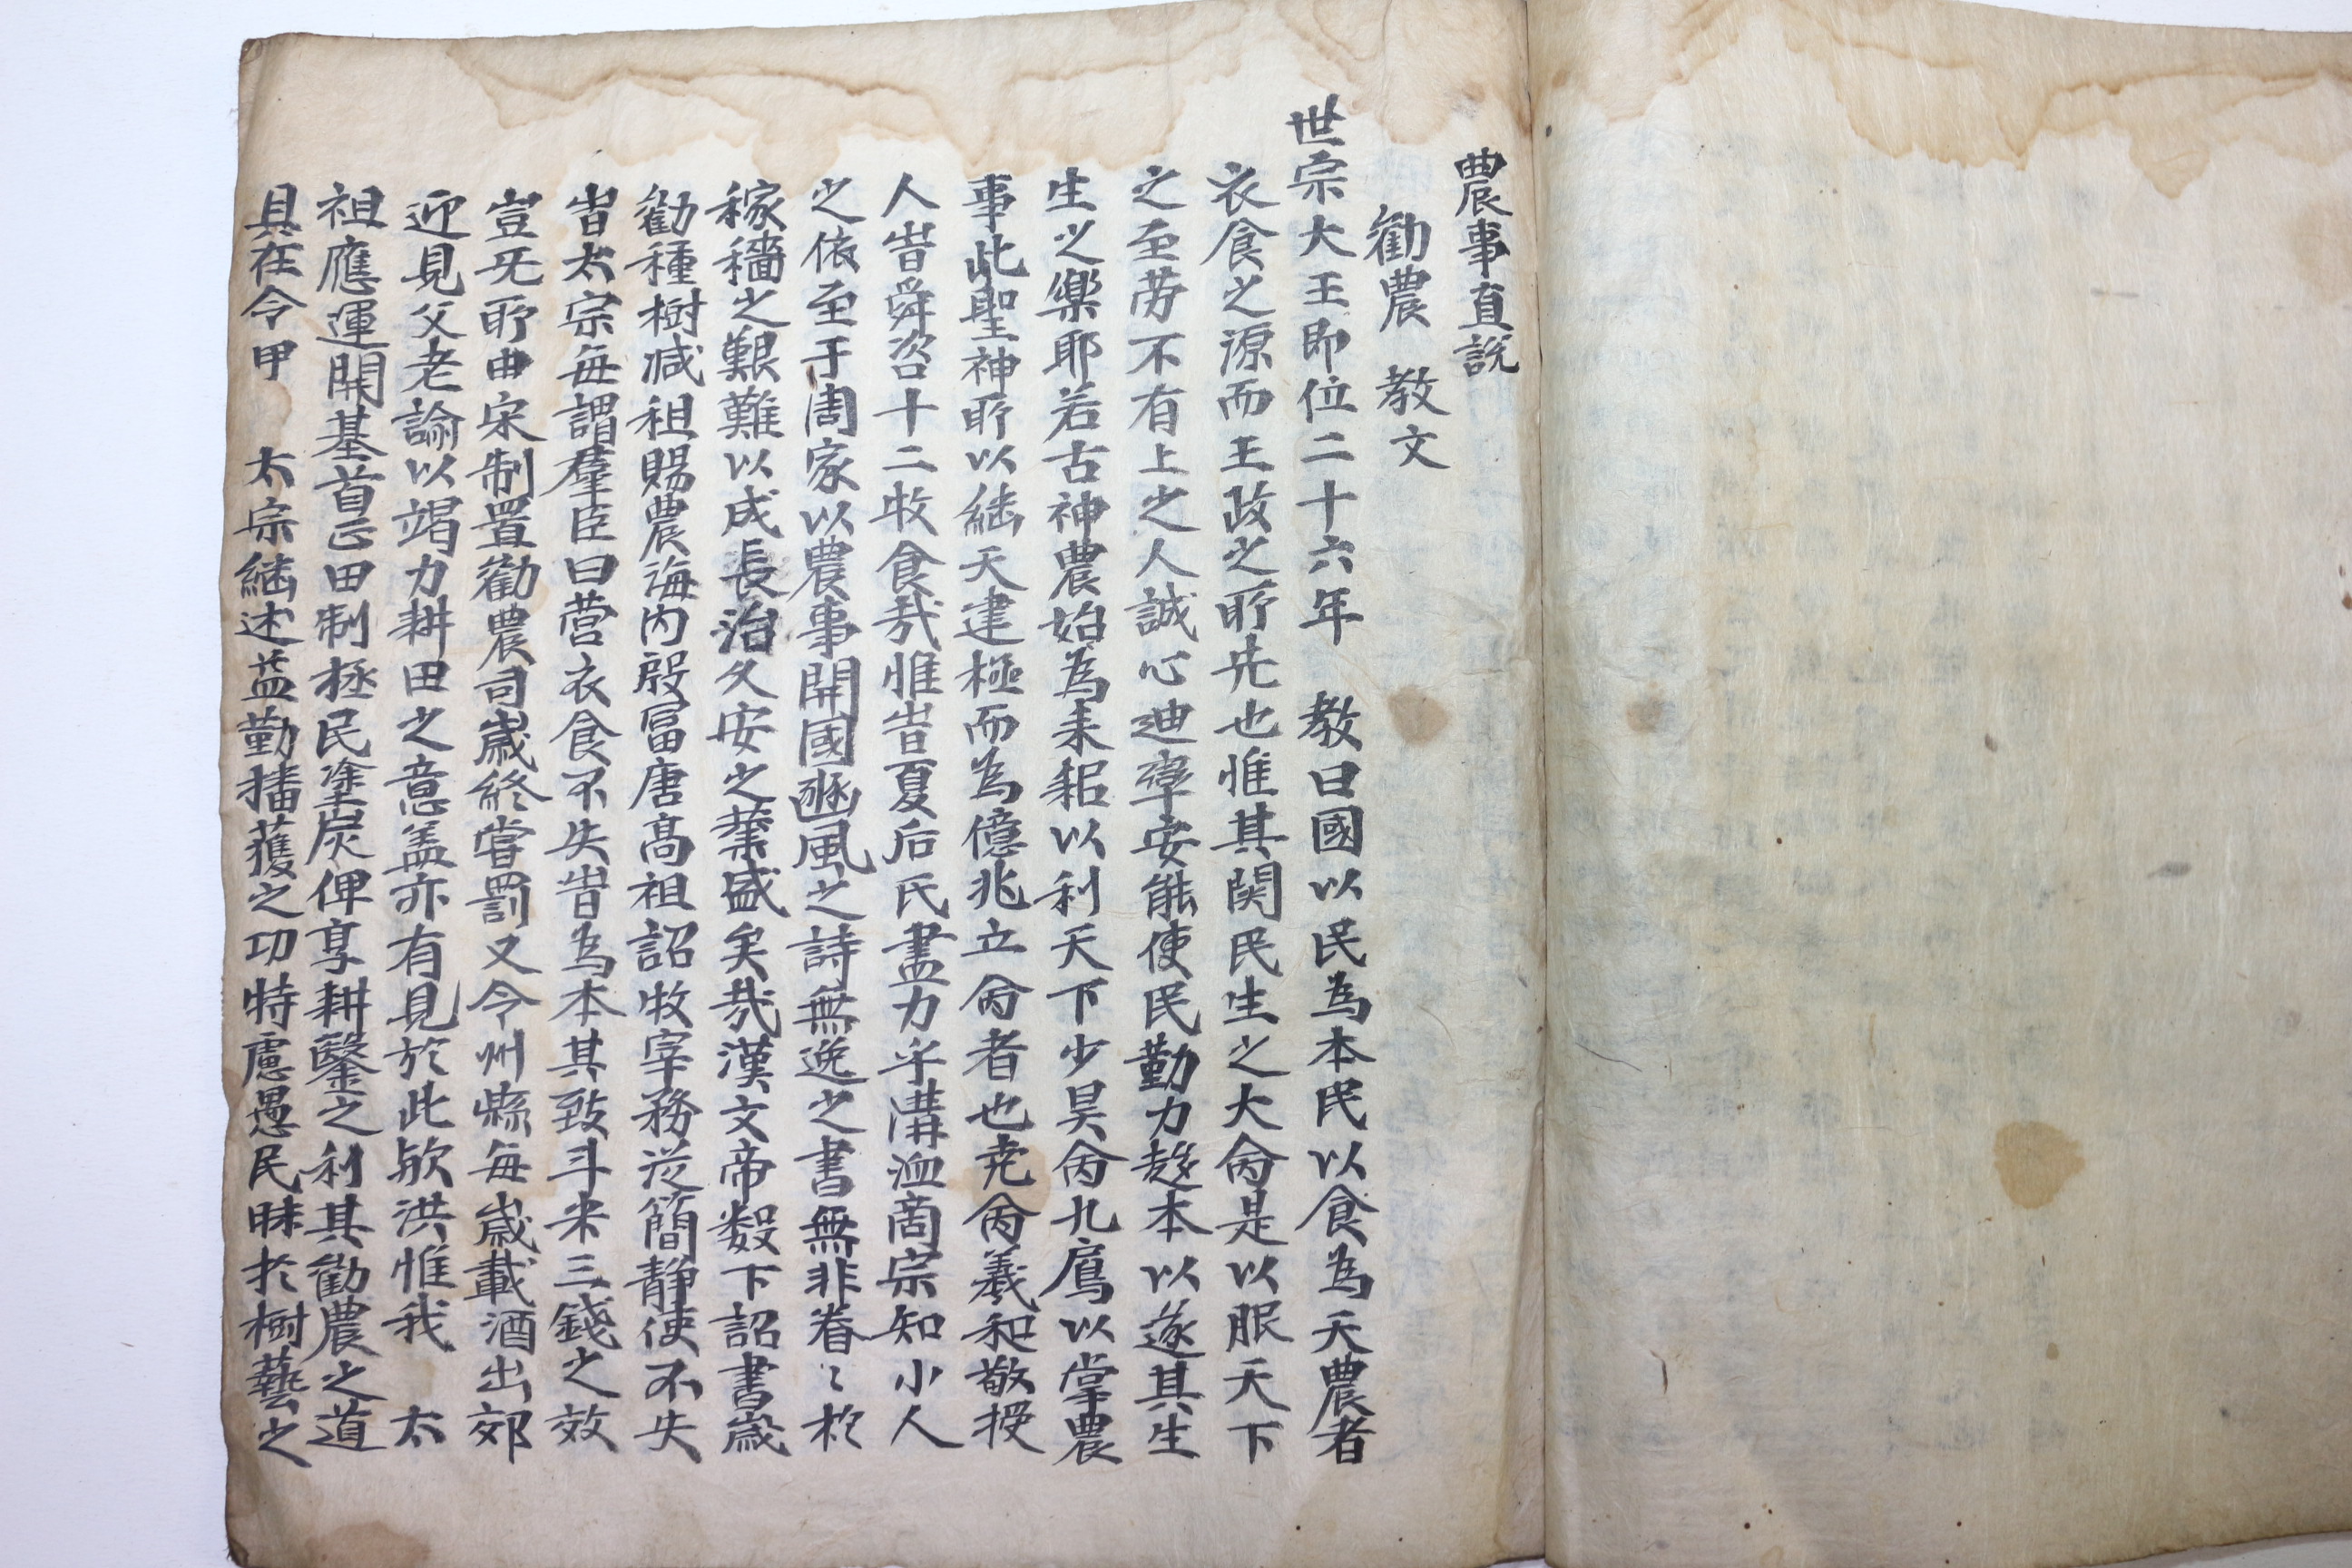 農事直說
勸農 教文
世宗大王即位二十六年 教曰國以民為本民以食為天農者
衣食之源而王政之所先也惟其関民生之大命是以服天下
之至劳不有上之人誠心迪率安能使民勤力趍本以遂其生
生之樂耶若古神農始為耒耜以利天下少昊命九扈以掌農
事此聖神所以継天建極而為億兆立命者也堯命羲和敬授
人旹舜咨十二牧食㦲惟旹夏后氏盡力乎溝洫商宗知小人
之依至于周家以農事開國豳風之詩無逸之書無非眷〻於
稼穡之艱難以成長治久安之業盛矣㦲漢文帝数下詔書歲
勸種樹减租賜農海内殷冨唐高祖詔牧宰務從簡静使不失
旹太宗每謂羣臣曰营衣食不失旹為本其致斗米三錢之效
豈旡所由宋制置勸農司歲終嘗罰又令州縣每歲載酒出郊
迎見父老諭以竭力耕田之意盖亦有見於此欤洪惟我 太
祖應運開基首正田制拯民塗炭俾享耕鑿之利其勸農之道
具在令甲 太宗継述益勤播穫之功特慮愚民昧於樹藝之